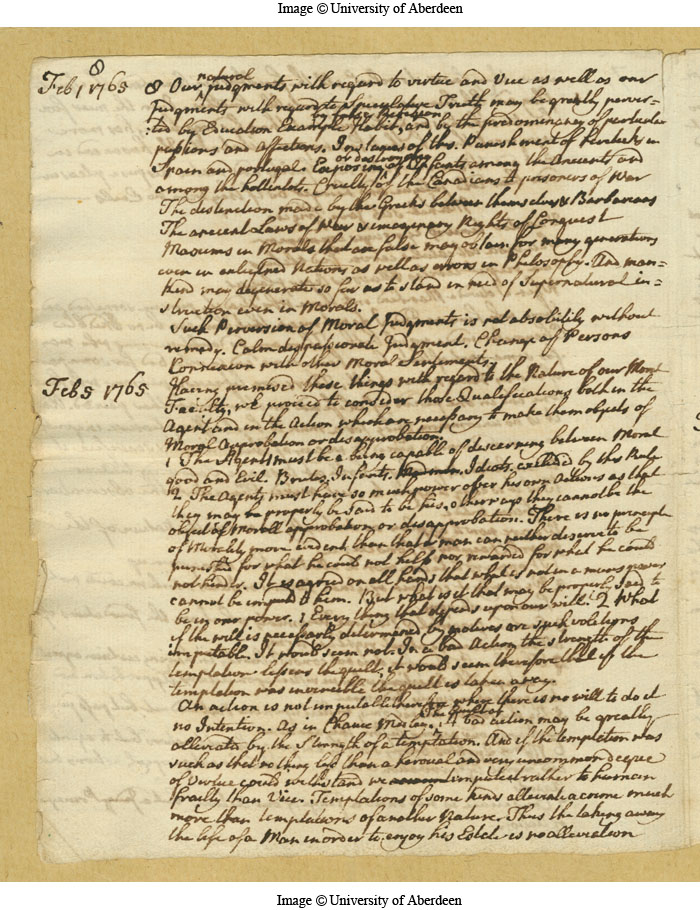 Image © University of Aberdeen
8
Feb 1 1765
8 Our natural Judgments with regard to virtue and Vice as well as our
Judgments with regard to Speculative Truth may be greatly perver-
:ted by Education Example Habit, and by the predominancy of particular
passions and affections. Instances of this. Punishment of Hereticks in
Spain and portugal. Exposing or destroying Infants among the Ancients and
among the hottentots. Cruelty of the Canadians to prisoners of War
The distinction made by the Greeks between themselves & Barbarians
The ancient Laws of War & imaginary Rights of Conquest
Maxims in Morals that are false may obtain for many generations
even in enlightned Nations as well as errors in Philosophy. And man-
kind may degenerate so far as to stand in need of Supernatural in-
struction even in Morals.
Such Perversion of Moral Judgments is not absolutely without
remedy. Calm dispassionate Judgment. Change of Persons
Connexion with other Moral Sentiments.
Feb 5 1765
Having premised these things with regard to the Nature of our Moral
Faculty, we proceed to consider those Qualifications both in the
Agent and in the Action which are necessary to make them objects of
Moral Approbation or disapprobation.
1 The Agent must be a being capable of discerning between Moral
good and Evil. Brutes, Infants, Idiots, excluded by this Rule
2 The Agent must have so much power over his own Actions as that
they may be properly be said to be his, otherways they cannot be the
object of Morall approbation or disapprobation. There is no principle
of Morality more evident than that a man can neither deserve to be
punished for what he could not help nor rewarded for what he could
not hinder. It is agreed on all hands that what is not in a mans power
cannot be imputed to him. But what is it that may be properly said to
be in our power. 1 Every thing that depends upon our will. 2 What
if the will is necessarly determined by motives are such volitions
imputable. It would seem not. In a bad Action the strength of the
temptation lessens the guilt, it would seem therefore that if the
temptation was invincible the guilt is taken away.
An action is not imputable therefore where there is no will to do it
no Intention. As in Chance Medley. The Guilt of a bad action may be greatly
alleviated by the Strength of a temptation. And if the temptation was
such as that nothing less than a heroical and very uncommon degree
of Virtue could withstand we imputed rather to human
frailty than Vice. Temptations of some kinds alleviate a crime much
more than temptations of another Nature. Thus the taking away
the life of a Man in order to enjoy his Estate is no alleviation
Image © University of Aberdeen